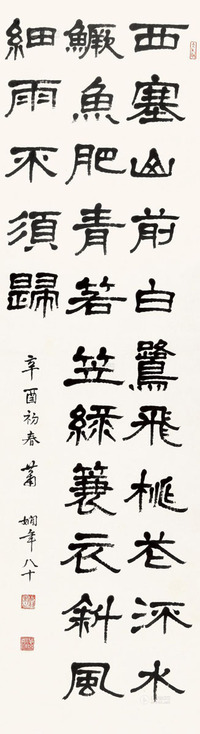 西塞山前白鷺飛桃花流水
鱖魚肥青箬笠綠簑衣斜風
細雨不須歸
辛酉初春 蕭嫻年八十